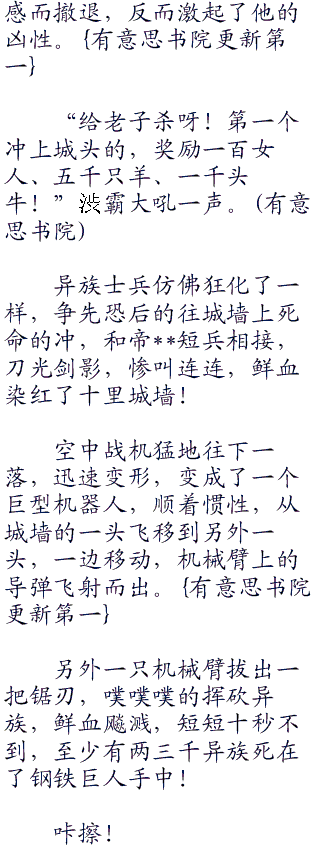 感而撤退，反而激起了他的
凶性。{有意思书院更新第
一}
“给老子杀呀！第一个
冲上城头的，奖励一百女
人、五千只羊、一千头
牛！”渋霸大吼一声。(有意
思书院)
异族士兵仿佛狂化了一
样，争先恐后的往城墙上死
命的冲，和帝**短兵相接，
刀光剑影，惨叫连连，鲜血
染红了十里城墙！
空中战机猛地往下一
落，迅速变形，变成了一个
巨型机器人，顺着惯性，从
城墙的一头飞移到另外一
头，一边移动，机械臂上的
导弹飞射而出。{有意思书院
更新第一}
另外一只机械臂拔出一
把锯刃，噗噗噗的挥砍异
族，鲜血飚溅，短短十秒不
到，至少有两三千异族死在
了钢铁巨人手中！
咔擦！